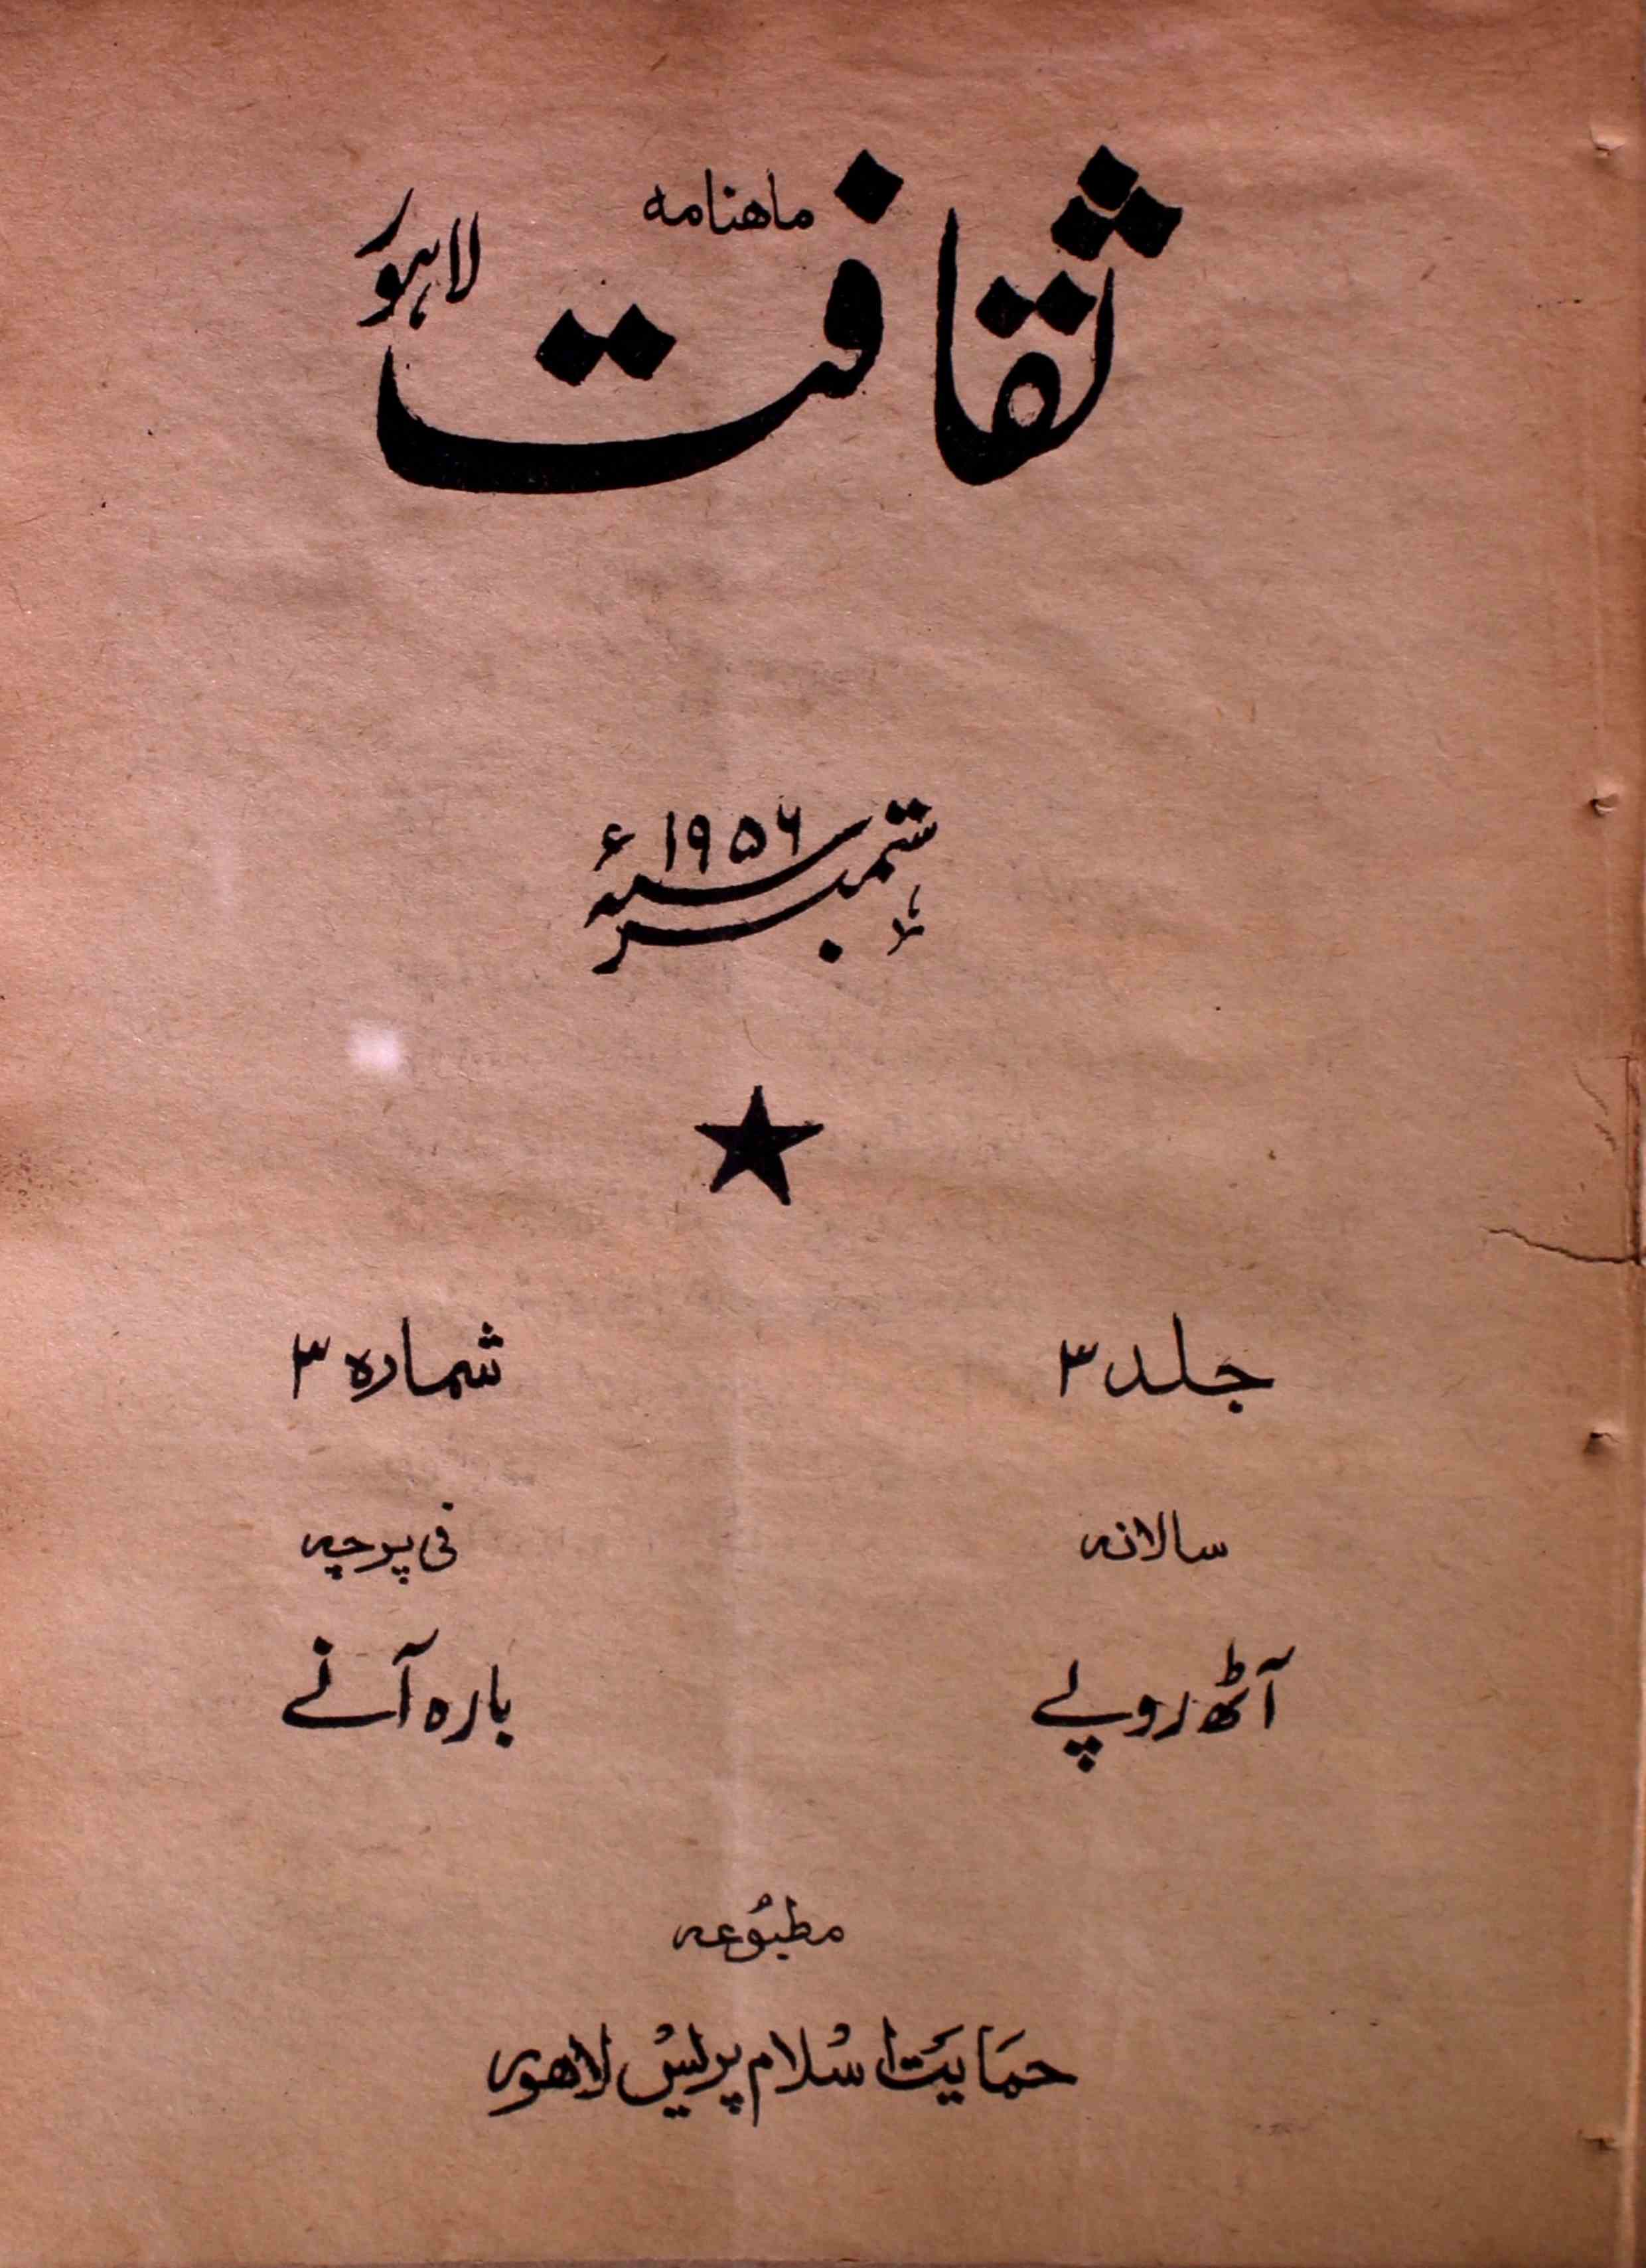 ماهنامه
ثقافت لاہور
ستمبر ۱۹۵۶ء
جلد ۳
شمارہ ۳
سالانہ
فی پرچہ
آٹھ روپے
بارہ آنے
مطبُوعہ
حمَایَت اسْلام پریسْ لاهور